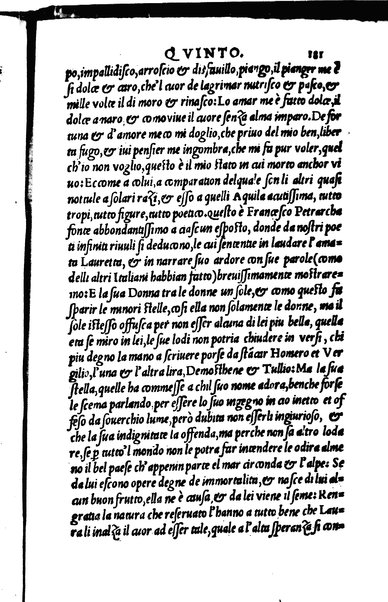 QVINTO. 181
po, impallidisco, arroscio & disfauillo, piango, il pianger me è
si dolce & caro, che'l cuor de lagrimar nutrisco & pasco, &
mille volte il di moro & rinasco: Lo amar me è fatto dolce, il
dolce amaro, & come viue il cuore senza alma imparo. De for
tuna & d'amore con mi doglio, che priuo del mio ben, liber
ta fugo, & iui pensier me ingombra, che mi fa pur voler, quel
ch'io non voglio, questo è il mio stato in cui morto anchor vi
uo: Eccome a colui, a comparation del quale son li altri quasi
notule a solari razi, & esso a quelli Aquila acutissima, tutto
tropi, tutto figure, tutto poetico. questo è Francesco Petrarcha
fonte abbondantissimo a ciascun esposto, donde da nostri poe
ti infiniti riuuli si deducono, le cui sententie in laudare l'ama-
ta Lauretta, & in narrare suo ardore con sue parole (como
delli altri Italiani babbian fatto) breuissimamente mostrare-
mo: E la sua Donna tra le donne un sole, & como questo fa
sparir le minori stelle, cosi ella non solamente le donne, ma il
sole istesso offusca per non esser alcuna di lei piu bella, quella
era se miro in lei, le sue lodi non potria chiudere in versi, chi
piu degno la mano a scriuere porse da stãcar Homero et Ver
gilio, l'una & l'altra lira, Demosthene & Tullio: Ma la sua
stella, quelle ha commesse a chi'l suo nome adora, benche forse
le scema parlando, per essere lo suo ingegno in cio inetto et of
feso da souerchio lume, però dubita non esserli ingiurioso, &
che la sua indignitate la offenda, ma perche non sa altro loda
re, se per tutto'l mondo non le potra far intendere le odira alme
no il bel paese ch'appennin parte el mar circonda & l'alpe: Se
da lui escono opere degne de immortalita, & nasce di lui al-
cun buon frutto, ella ne è causa, & da lei viene il seme: Ren-
gratia la natura che reseruato l'hanno a tutto bene che Lau-
ra li inalza il cuor ad esser tale, quale a l'alta speranza si con-